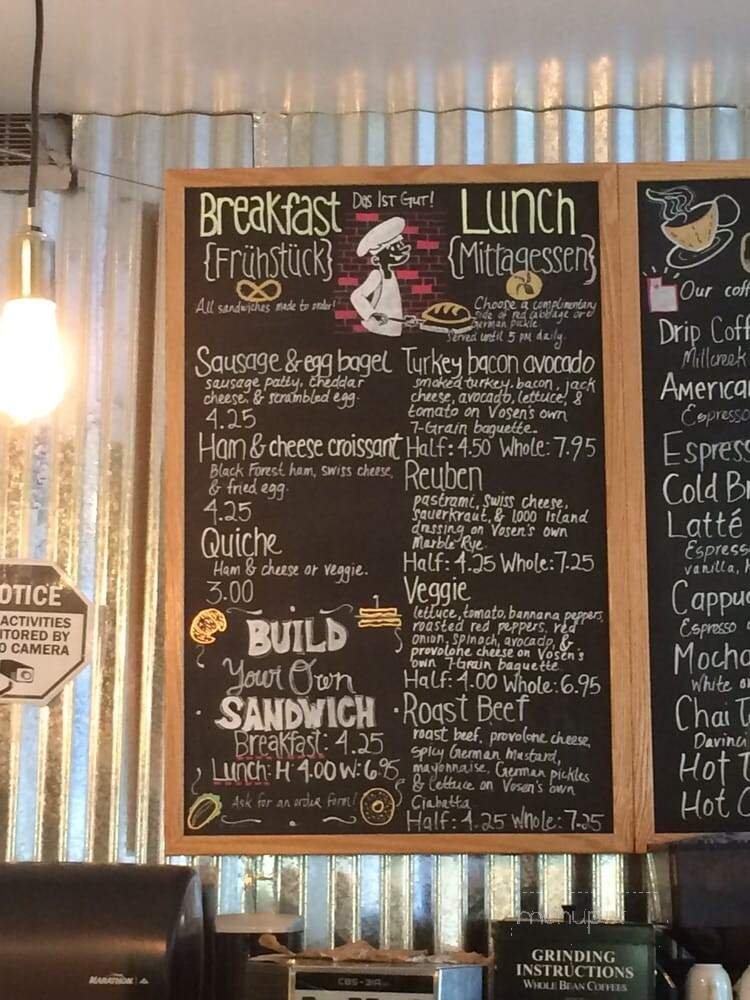 Breakfast
{Frühstück}
All sandwiches made to order!
Das Ist Gut!
Sausage & egg bagel
sausage patty, cheddar
cheese, & scrambled egg.
4.25
Ham & cheese croissant
Black Forest ham, swiss cheese,
& fried egg.
4.25
Quiche
Ham & cheese or veggie.
3.00
BUILD
Your Own
SANDWICH
Breakfast: 4.25
Lunch: H: 4.00 W: 6.95
Ask for an order form!
Lunch
{Mittagessen}
Choose a complimentary
side of red cabbage or a
German pickle
Served until 5 pm daily.
Turkey bacon avocado
smoked turkey, bacon, jack
cheese, avocado, lettuce, &
tomato on Vosen's own
7-Grain baguette.
Half: 4.50 Whole: 7.95
Reuben
pastrami, swiss cheese,
sauerkraut, & 1,000 Island
dressing on Vosen's own
Marble Rye.
Half: 4.25 Whole: 7.25
Veggie
lettuce, tomato, bannana peppers,
roasted red peppers, red
onion, spinach, avocado, &
provolone cheese on Vosen's
own 7-Grain baguette
Half: 4.00 Whole: 6.95
Roast Beef
roast beef, provolone cheese,
spicy German Mustard,
mayonnaise, German pickles
& lettuce on Vosen's own
Ciabatta
Half: 4.25 Whole: 7.25
Our coff
Drip Coff
Millcreek
America
Espresso
Espress
Cold Br
Latté
Espress
vanilla,
Cappu
Espresso
Mocha
White o
Chai T
Davinci
Hot T
Hot C
OTICE
ACTIVITIES
ITORED BY
O CAMERA
MARATHON
CBS-31A
GRINDING
INSTRUCTIONS
WHOLE BEAN COFFEES